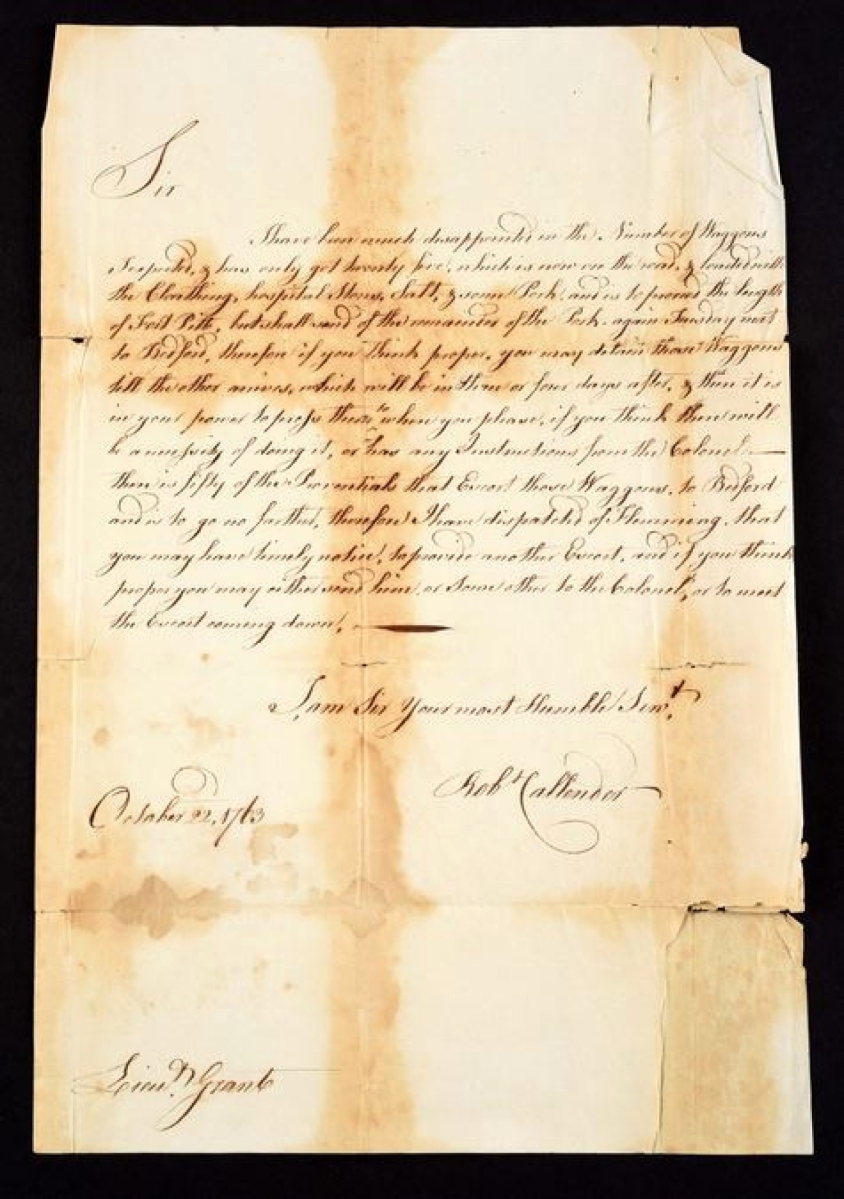 Sir
I have been much disappointed in the Number of Waggons
Expected, & has only got twenty five, which is now on the road, & loaded with
the Cloathing, hospital Stores, Salt, & some Pork, and is to proceed the length
of Fort Pitt, but shall send of the remainder of the Pork again Tuesday next
to Bedford, therefore if you think proper, you may detain those Waggons
till the other arrives, which will be in three or four days after, & then it is
in your power to press them to when you please, if you think there will
be a necessity of doing it, or has any Instructions from the Colonel
there is fifty of the Proventials that Escort those Waggons, to Bedford
and is to go no farther, therefore I have dispatched of Flemming, that
you may have timely notice, to provide another Escort, and if you think
proper you may either send him, or Some other to the Colonel, or to meet
the Escort coming down,
I am Sir Your most Humble Servt.
Robt Callender
October 22, 1763
Lieut. Grant